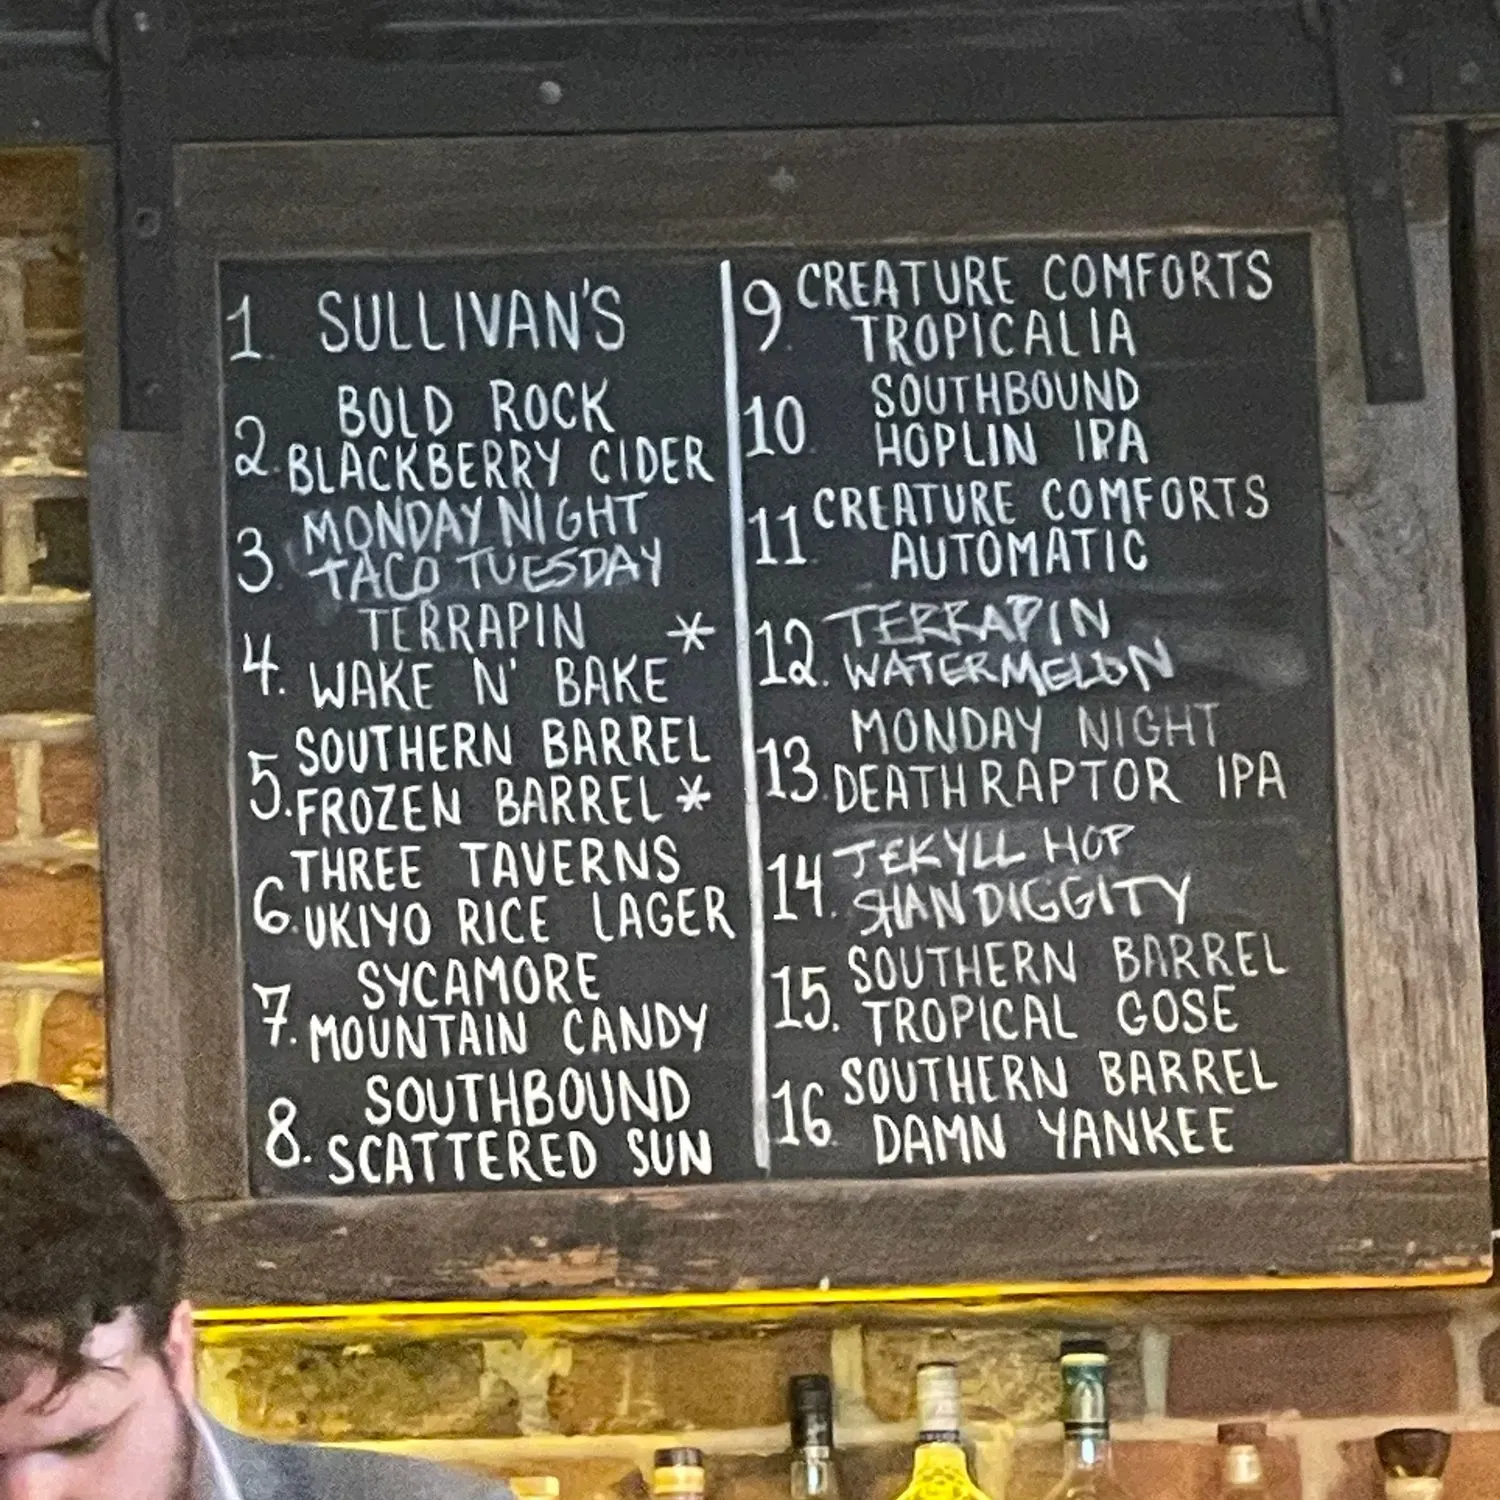 1. SULLIVAN'S
BOLD ROCK
2. BLACKBERRY CIDER
MONDAY NIGHT
3. TACO TUESDAY
TERRAPIN *
4. WAKE N' BAKE
SOUTHERN BARREL
5. FROZEN BARREL *
THREE TAVERNS
6. UKIYO RICE LAGER
SYCAMORE
7. MOUNTAIN CANDY
SOUTHBOUND
8. SCATTERED SUN
9. CREATURE COMFORTS
TROPICALIA
SOUTHBOUND
10 HOPLIN IPA
11 CREATURE COMFORTS
AUTOMATIC
12. TERRAPIN
WATERMELON
MONDAY NIGHT
13. DEATHRAPTOR IPA
14. JEKYLL HOP
SHANDIGGITY
15. SOUTHERN BARREL
TROPICAL GOSE
16 SOUTHERN BARREL
DAMN YANKEE